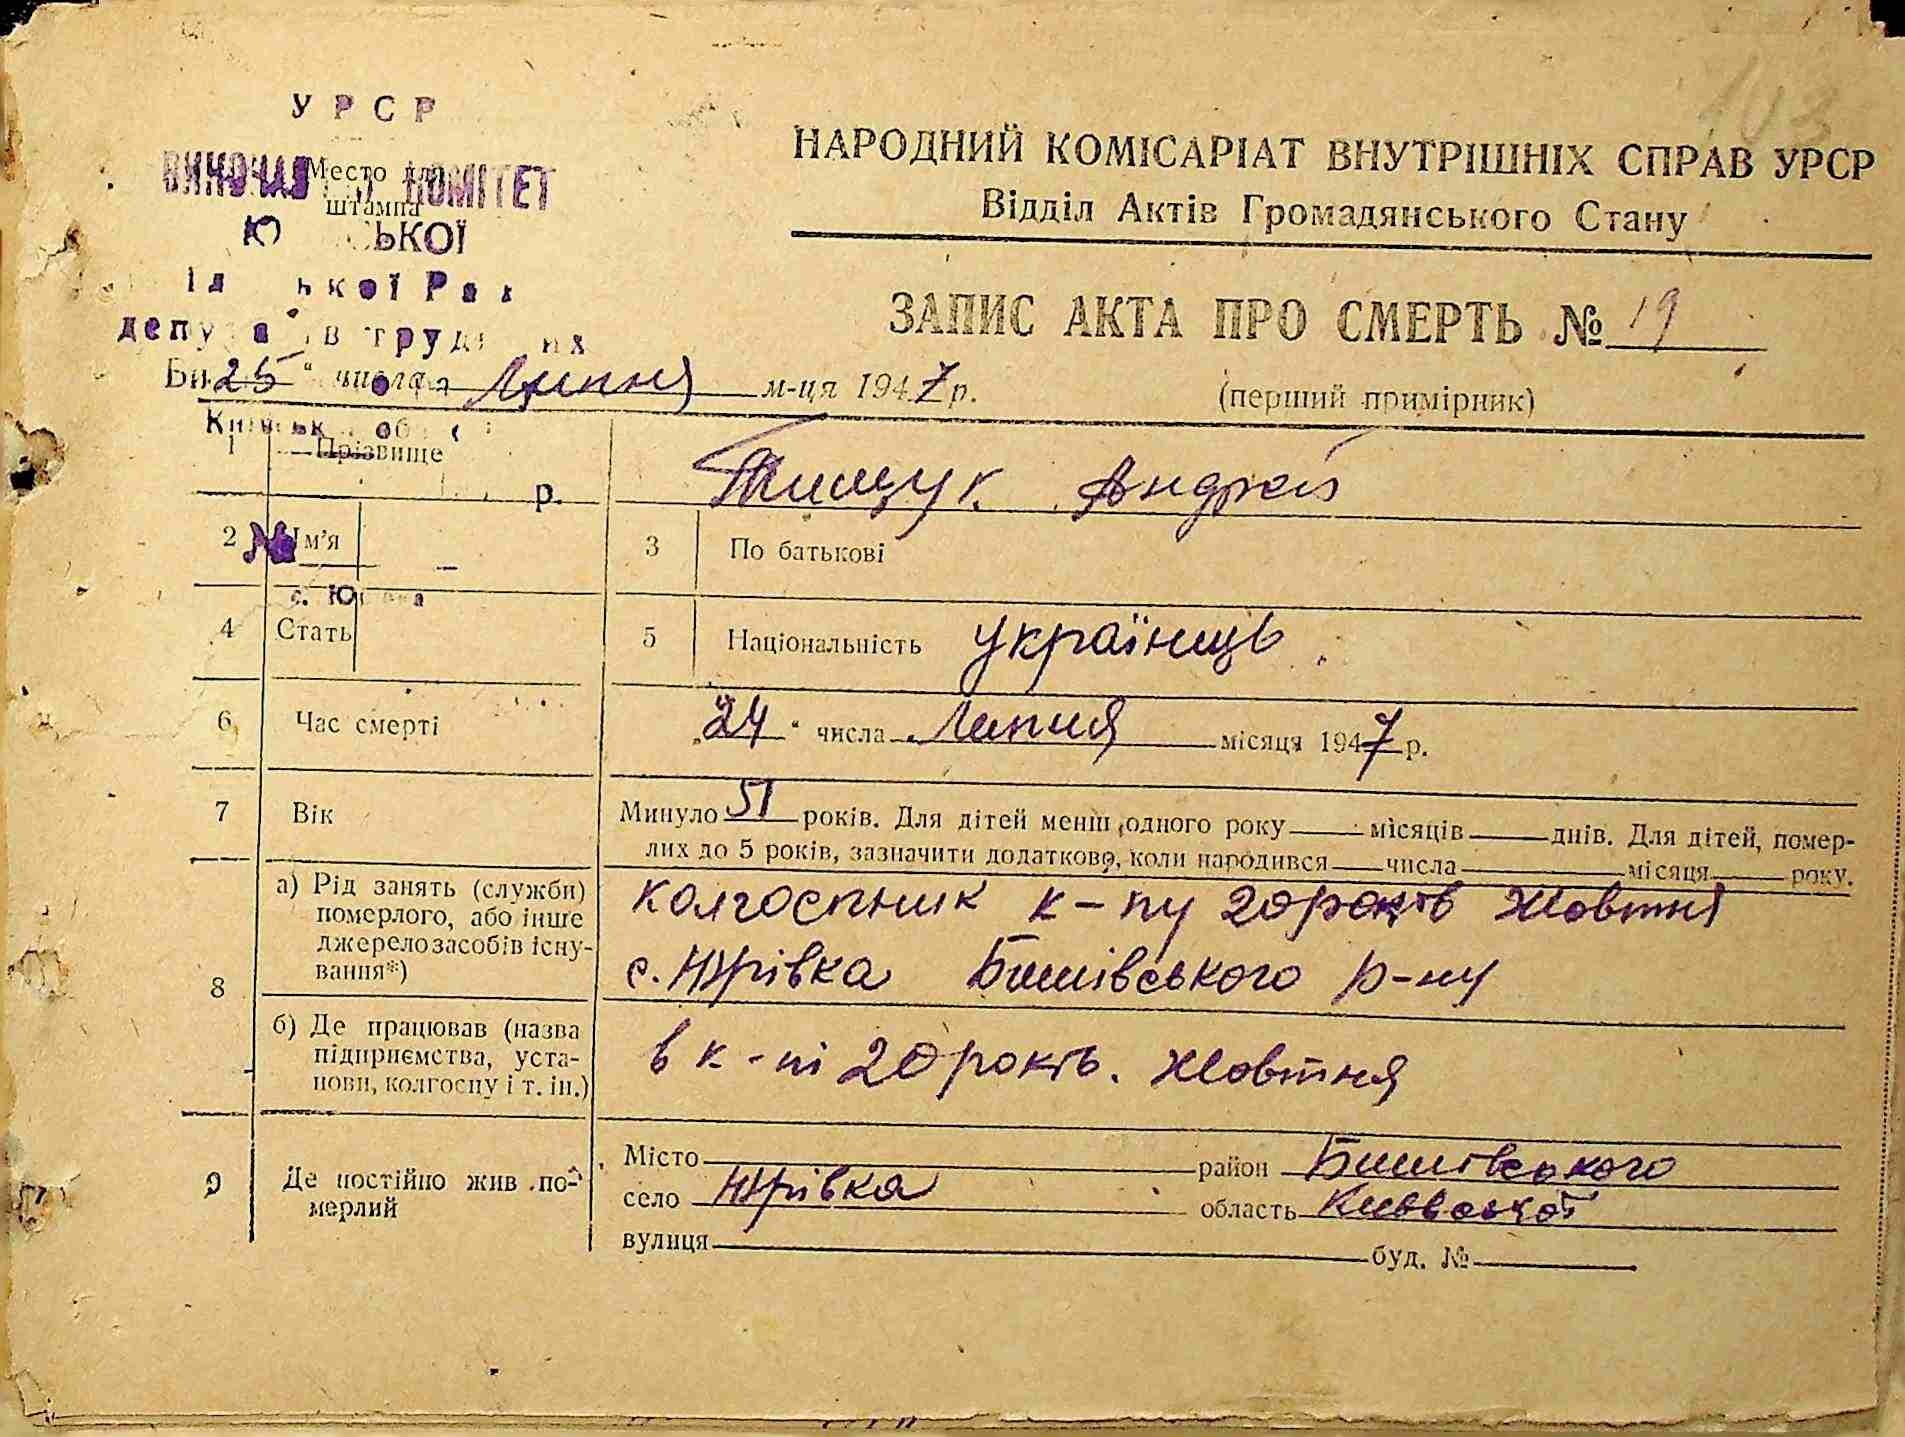 103
УРСР
Место для
ВИКОЧАВ КОМІТЕТ
штампа
Ю СЬКОЇ
ької Рад
депу в труд их
НАРОДНИЙ КОМІСАРІАТ ВНУТРІШНІХ СПРАВ УРСР
Відділ Актів Громадянського Стану
ЗАПИС АКТА ПРО СМЕРТЬ № 19
(перший примірник)
25 " числа Липня м-ця 1947 р.
1 Прізвище Тищук Андрей
р.
2 Ім'я
№
3 По батькові
4 Стать
5 Національність українець
6 Час смерті „24" числа Липня місяця 1947 р.
7 Вік Минуло 51 років. Для дітей менш одного року місяців днів. Для дітей, помер-
лих до 5 років, зазначити додатково, коли народився числа місяця року.
8 а) Рід занять (служби)
померлого, або інше
джерело засобів існу-
вання*)
колгоспник к-пу 20 років Жовтня
с. Юрівка Бишівського р-ну
б) Де працював (назва
підприємства, уста-
нови, колгоспу і т. ін.)
в к-пі 20 років. Жовтня
9 Де постійно жив по-
мерлий
Місто район Бишівського
село Юрівка область Київської
вулиця буд. №